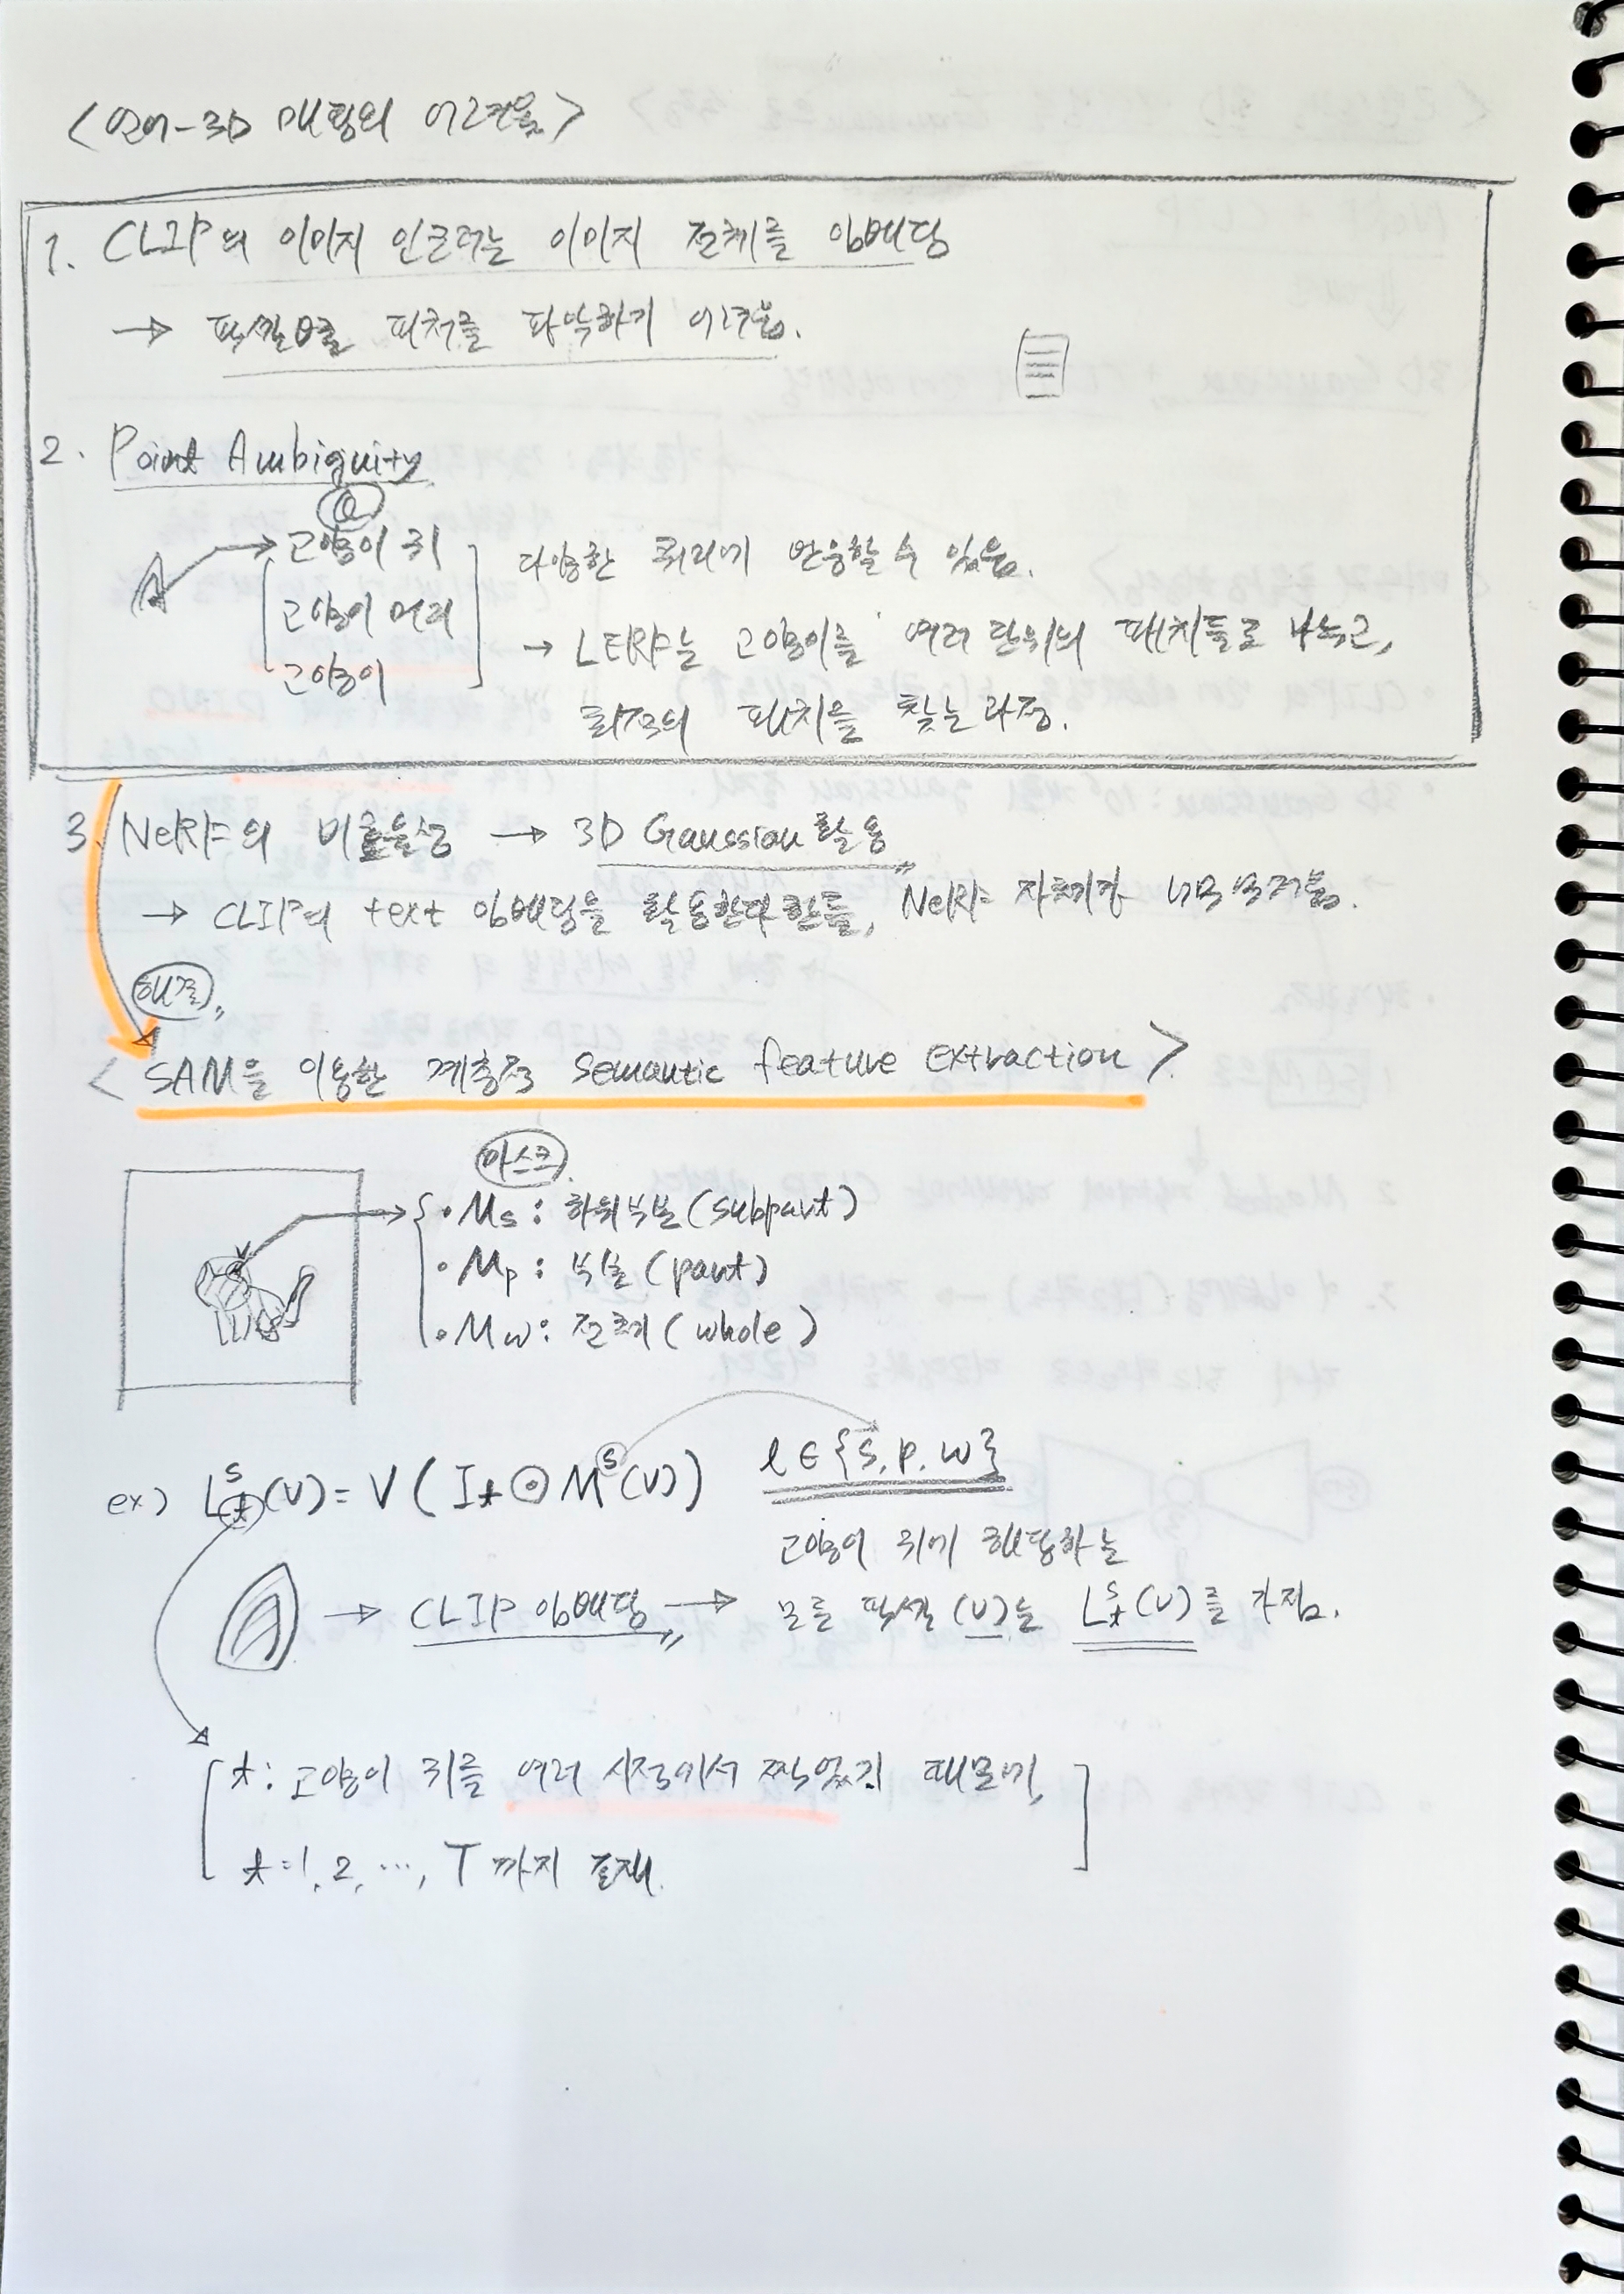 <언어-3D 매핑의 어려움>
1. CLIP의 이미지 인코더는 이미지 전체를 임베딩
→ 픽셀별 피처를 파악하기 어려움.
2. Point Ambiguity
Q
고양이 귀
고양이 머리
고양이
다양한 쿼리에 반응할 수 있음.
→ LERF는 고양이를 여러 단위의 패치들로 나누고,
최적의 패치를 찾는 과정.
3. NeRF의 비효율성 → 3D Gaussian 활용
→ CLIP의 text 임베딩을 활용한다 한들, NeRF 자체가 너무 무거움.
해결
<SAM을 이용한 계층적 semantic feature extraction>
마스크
• Ms : 하위부분 (subpart)
• Mp : 부분 (part)
• Mw : 전체 (whole)
ex) L^s_t(v) = V( I_t ⊙ M^s(v)) l ∈ {s, p, w}
고양이 귀에 해당하는
→ CLIP 임베딩 → 모든 픽셀 (v)는 L^s_t(v)를 가짐.
t : 고양이 귀를 여러 시점에서 찍었기 때문에,
t=1, 2, ..., T 까지 존재.